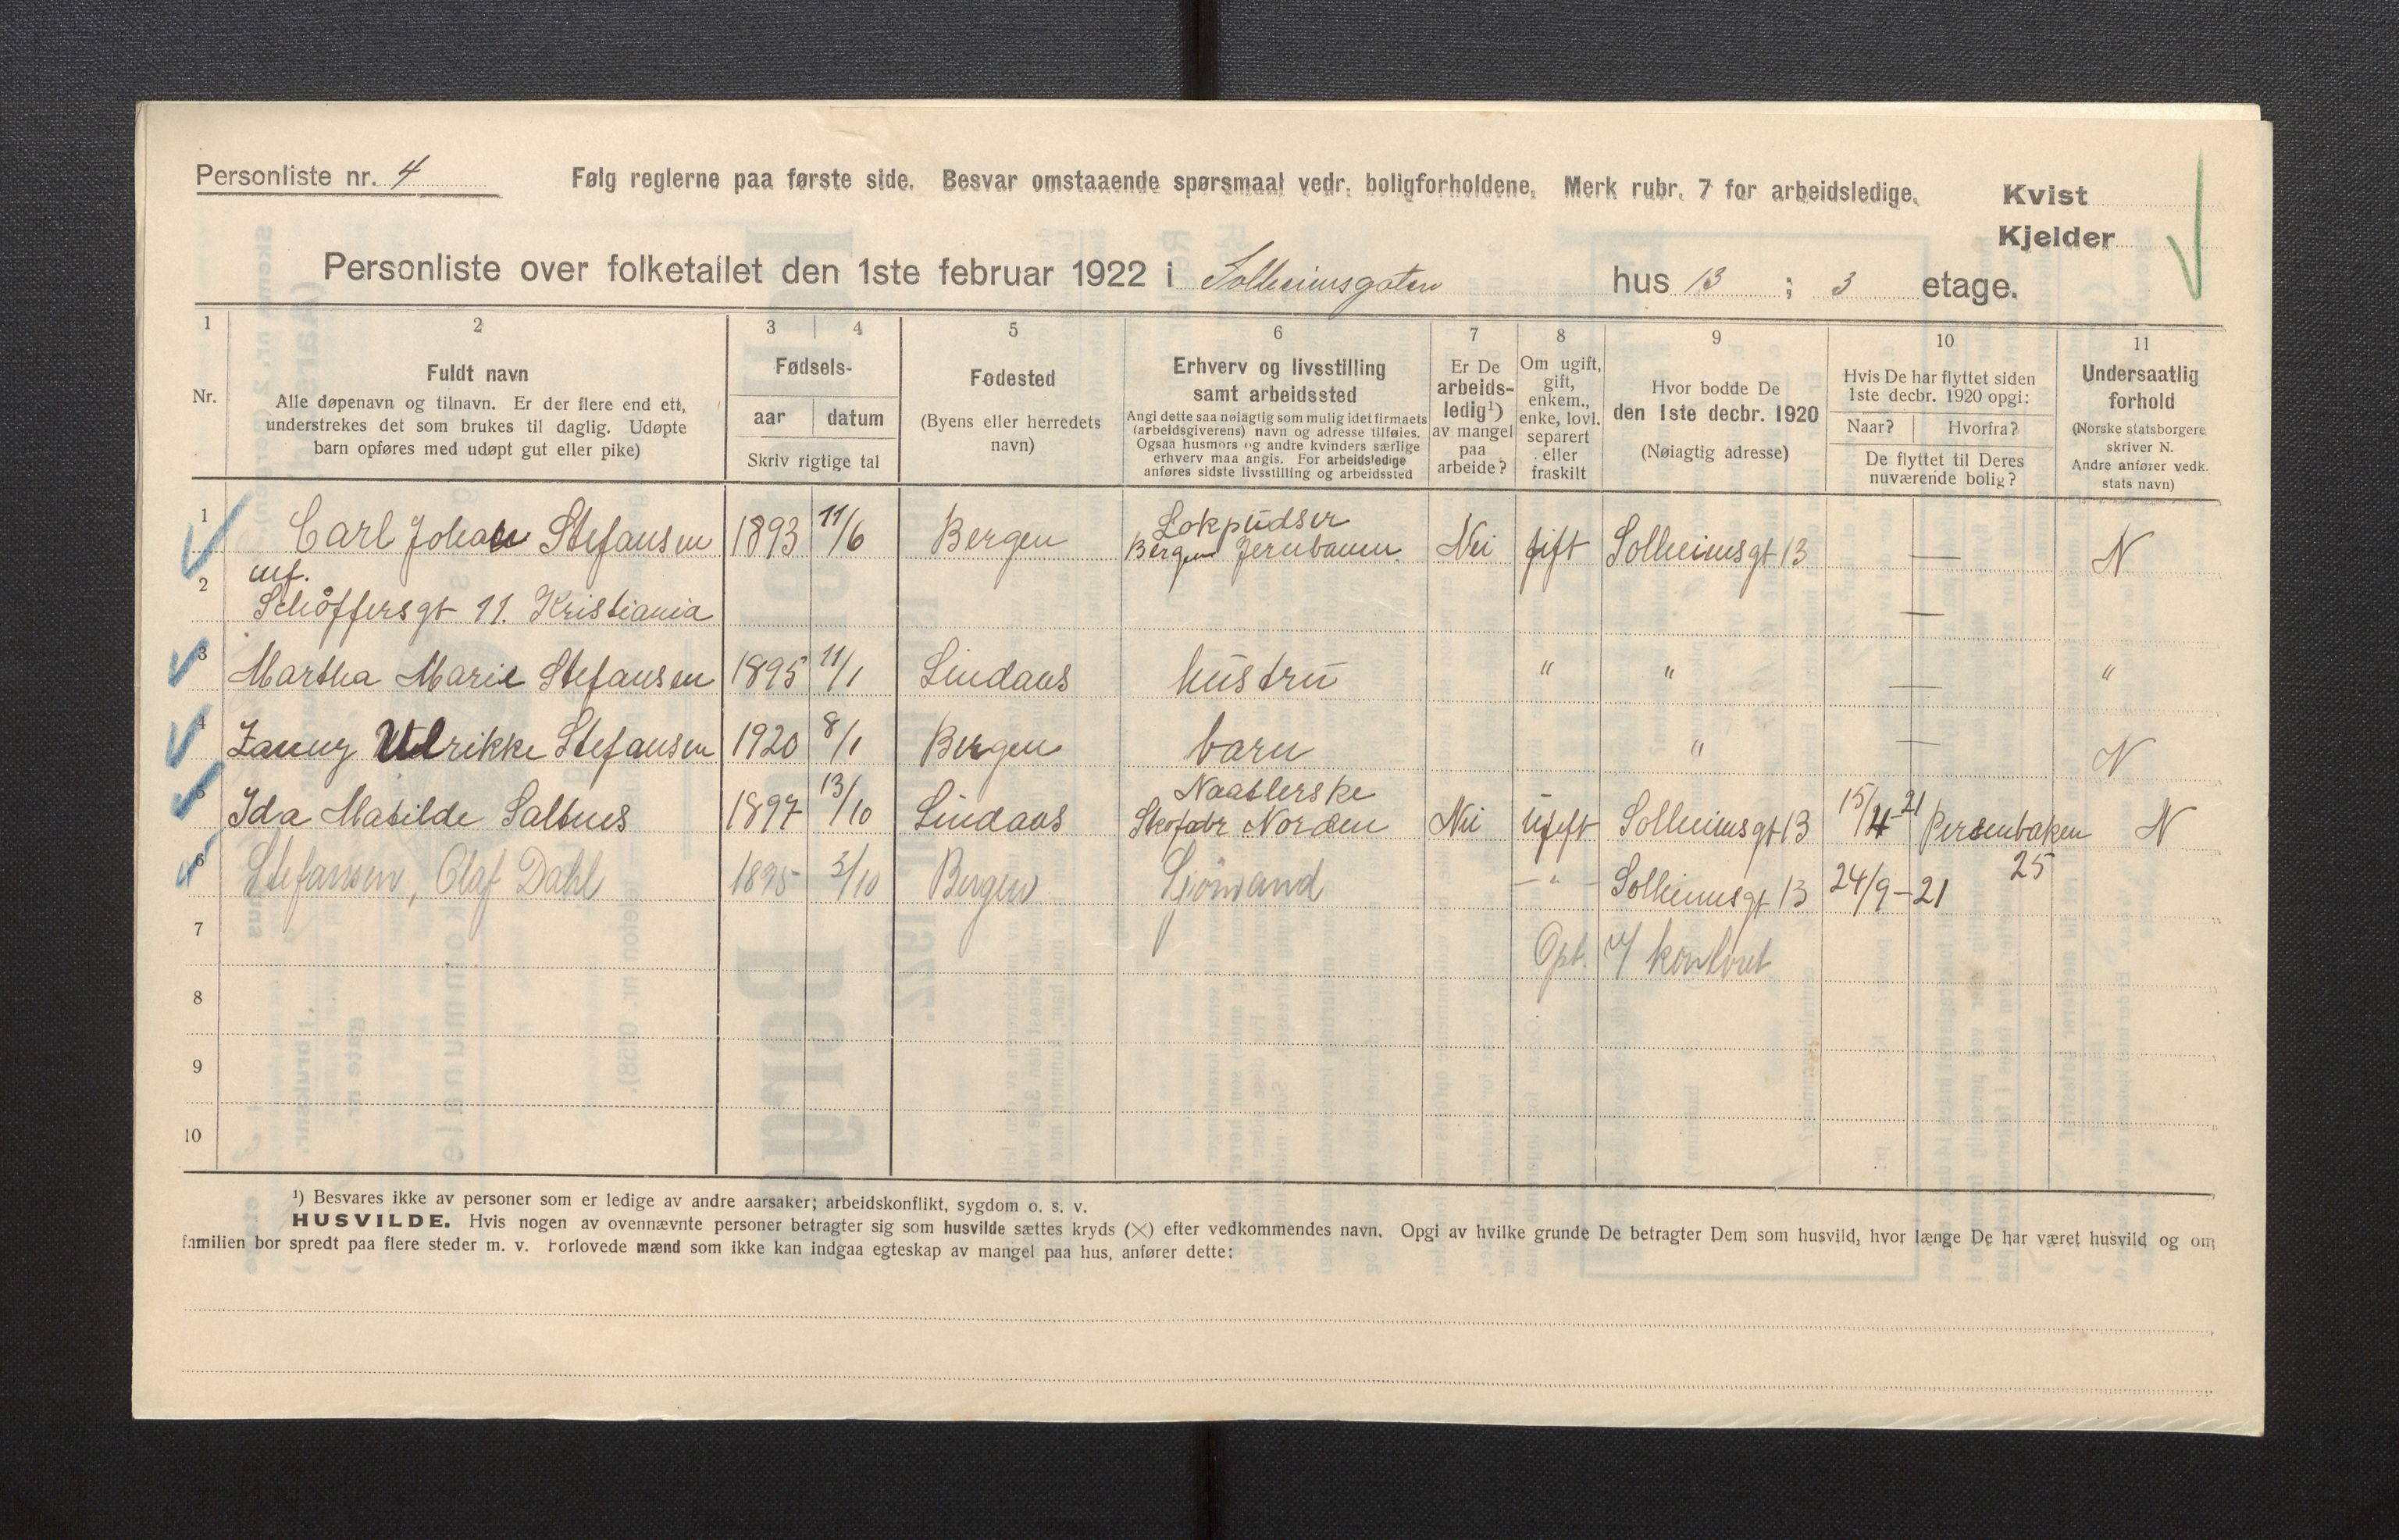 Personliste nr. 4
Følg reglerne paa første side. Besvar omstaaende spørsmaal vedr. boligforholdene. Merk rubr. 7 for arbeidsledige.
Kvist
Kjelder
Personliste over folketallet den 1ste februar 1922 i Solheimsgaten hus 13 ; 3 etage.
1 2 3 4 5 6 7 8 9 10 11
Nr.
Fuldt navn
Alle døpenavn og tilnavn. Er der flere end ett,
understrekes det som brukes til daglig. Udøpte
barn opføres med udøpt gut eller pike)
Fødsels-
aar datum
Skriv rigtige tal
Fødested
(Byens eller herredets
navn)
Erhverv og livsstilling
samt arbeidssted
Angi dette saa nøiagtig som mulig idet firmaets
(arbeidsgiverens) navn og adresse tilføies.
Ogsaa husmors og andre kvinders særlige
erhverv maa angis. For arbeidsledige
anføres sidste livsstilling og arbeidssted
Er De
arbeids-
ledig¹)
av mangel
paa
arbeide?
Om ugift,
gift,
enkem.,
enke, lovl.
separert
eller
fraskilt
Hvor bodde De
den 1ste decbr. 1920
(Nøiagtig adresse)
Hvis De har flyttet siden
1ste decbr. 1920 opgi:
Naar? Hvorfra?
De flyttet til Deres
nuværende bolig?
Undersaatlig
forhold
(Norske statsborgere
skriver N.
Andre anfører vedk.
stats navn)
1 Carl Johan Stefansen 1893 11/6 Bergen Lokpudser Bergens Jernbanen. Nei gift Solheimsgt 13 — N
2 mf. Schøffersgt 11. Kristiania —
3 Martha Marie Stefansen 1895 11/1 Lindaas hustru " " — "
4 Fanny Ulrikke Stefansen 1920 8/1 Bergen barn " — N
5 Ida Matilde Saltnes 1897 13/10 Lindaas Naatlerske Skofabr Norden Nei ugift Solheimsgt 13 15/4-21 Persenbakken 25 N
6 Stefansen, Olaf Dahl 1895 2/10 Bergen Sjömand — " — Solheimsgt 13 24/9-21
7 Opt. v/ kontoret
8
9
10
¹) Besvares ikke av personer som er ledige av andre aarsaker; arbeidskonflikt, sygdom o. s. v.
HUSVILDE. Hvis nogen av ovennævnte personer betragter sig som husvilde sættes kryds (×) efter vedkommendes navn. Opgi av hvilke grunde De betragter Dem som husvild, hvor længe De har været husvild og om
familien bor spredt paa flere steder m. v. Forlovede mænd som ikke kan indgaa egteskap av mangel paa hus, anfører dette: